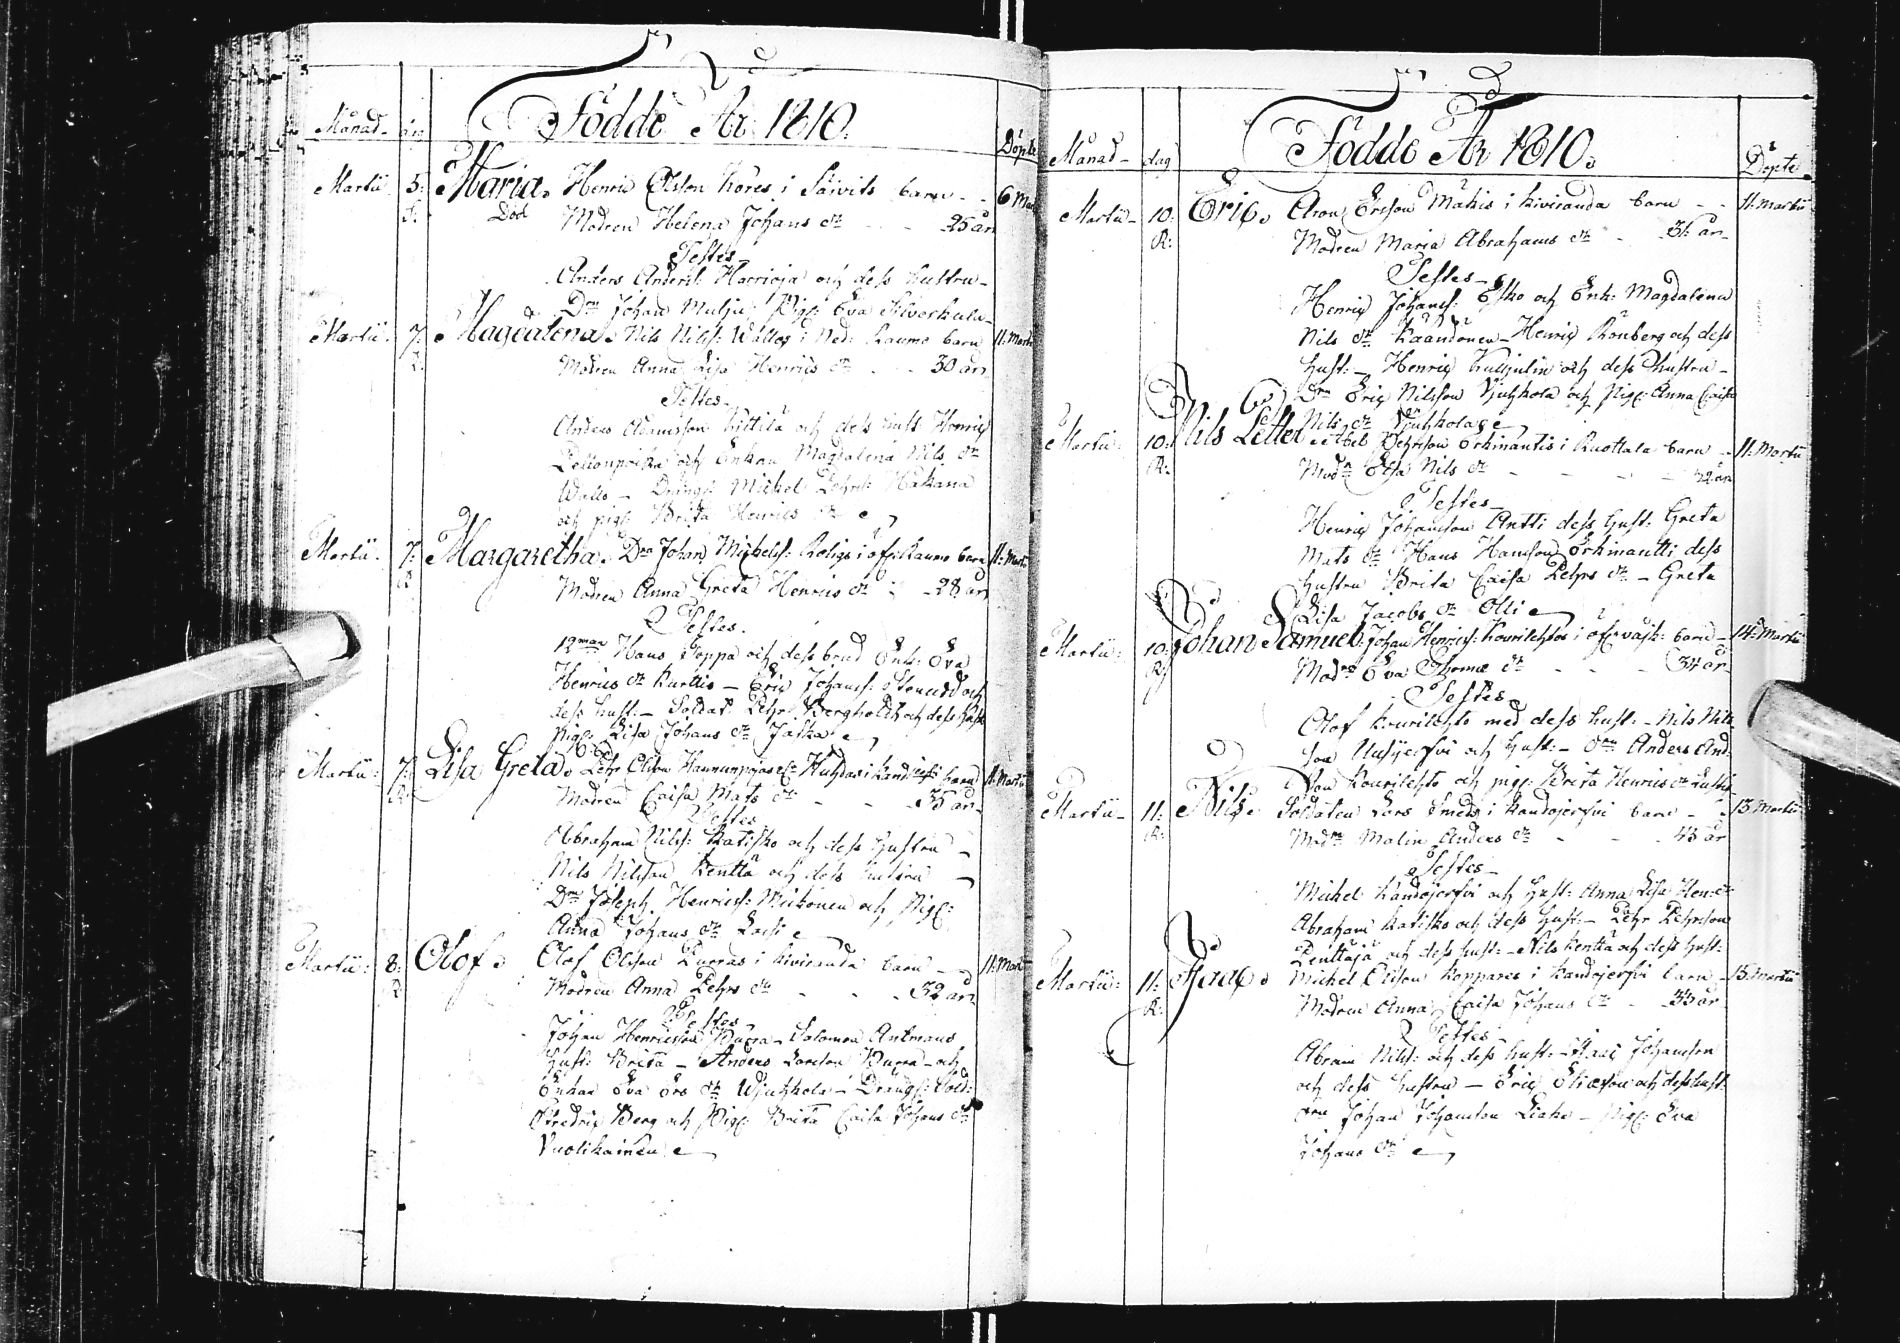 Månad dag Födde År 1810. Döpte
Martii 5: Maria. Henric Olsson Kores i Säivits barn - 6 Mart
Död Modren Helena Johans dr - 25 år
Testes
Anders Anderss: Harrioja och dess hustru
Drn Johan Mulju, Pig: Eva Silverhula
Martii 7: Magdalena. Nils Nilss: Wallos i Ned: Raumo barn 11: Martii
Modren Anna Lisa Henrics dr - 30 år
Testes
Anders Adamsson Kittilä och dess hust: Henric
och Enkan Magdalena Nils dr
Wallo - Drängs: Michel Pehrs: Hakana
och pig: Brita Henrics dr
Martii 7: Margaretha. Drn Johan Michelss: Roligs i Öfre Raumo barn 11: Martii
R: Modren Anna Greta Henrics dr - 28 år
Testes.
12man Hans Poppa och dess brud Enk: Eva
Henrics dr Kurttio - Eric Johanss: och
dess hust: - Soldat: Pehr Bergholdt och dess hust
Pig: Lisa Johans dr Jaska
Martii 7: Lisa Greta. Pehr Olsson barn 11: Martii
R: Modren Caisa Mats dr - 35 år
Testes
Abraham Nilss: Ratisko och dess hustru -
Nils Nilsson Kenttä och dess hustru -
Drn Joseph Henricss: Miikonen och Pig:
Anna Johans dr
Martii: 8: Olof. Olof Olsson Purras i Kiviranda barn - 11: Mart
R Modren Anna Pehrs dr - 32 år
Testes
Johan Henricsson Purra - Salomon Antmans
hust: Brita - Anders Larsson Purra - och
Enkan Eva Ers dr Wjuhkola - Drängs: Sold:
Fredric Berg och Pig: Brita Caisa Johans dr
Vuolikainen
Månad dag Födde År 1810. Döpte
Martii 10: Eric. Aron Ersson Mäkis i Kiviranda barn - 11: Martii
R: Modren Maria Abrahams dr - 31 år
Testes
Henric Johanss: Esko och Enk: Magdalena
Nils dr Käändonen - Henric Rönberg och dess
hust: - Henric Kulljulin och dess hustru -
Drn Eric Nilsson Vjuhkola och Pig: Anna Caisa
Nils dr Vjuhkola
Martii 10: Nils Petter Abel Pehrsson Erkinanttis i Ruottala barn - 11: Martii
R: Modrn Elsa Nils dr - 32 år
Testes
Henric Johansson Antti dess hust: Greta
Mats dr Hans Hansson Erkinantti dess
hustru Brita Caisa Pehrs dr - Greta
Lisa Jacobs dr Olli
Martii 10: Johan Samuel: Johan Henricss: Kourilehtos i barn - 14: Martii
R: Modrn Eva Thoma dr - 34 år
Testes
Olof Kourilehto med dess hust: - Nils Nils
son Uusijerfvi och hust: - drn Anders And:
son Kourilehto och pig: Brita Henrics dr
Martii 11: Nils. Soldaten Lars Smeds i Kandojerfvi barn - 13 Martii
R: Modrn Malin Anders dr - 43 år
Testes
Michel Kandojerfvi och hust: Anna Lisa Hen: dr
Abraham Ratisko och dess hust: - Pehr Pehrsson
Penttäjä och dess hust: - Nils Kenttä och dess hust:
Martii: 11: Isaac. Michel Olsson Koppares i Kandojerfvi barn - 15 Martii
R: Modren Anna Caisa Johans dr - 33 år
Testes
Abram Nilss: och dess hust: - Isaac Johansson
och dess hustru - Eric Ericsson och dess hust:
drn Johan Johansson Liaka - Pig: Eva
Johans dr